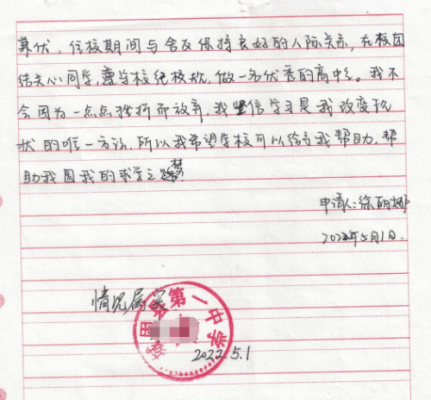 住校期间与舍友保持良好的人际关系，在校团
结关心同学，遵守校纪校规，做一名优秀的高中生。我不
会因为一点点挫折而放弃，我坚信学习是我改变现
状的唯一方法，所以我希望学校可以给予我帮助，帮
助我圆我的求学之梦
申请人：徐丽娜
2022年5月1日.
情况属实
第一中学
2022.5.1